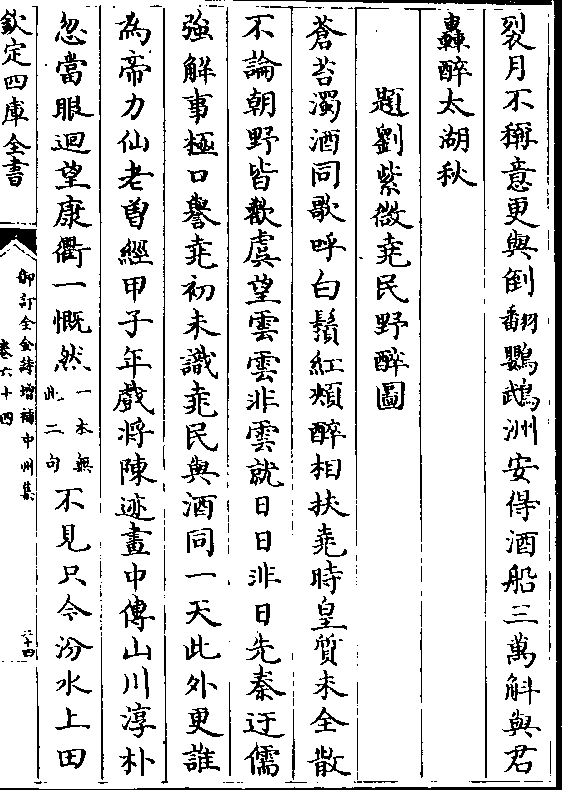 裂月不稱意更與倒翻鸚鵡洲安得酒船三萬斛與君
轟醉太湖秋
題劉紫微堯民野醉圖
蒼苔濁酒同歌呼白鬚紅頰醉相扶堯時皇質未全散
不論朝野皆歡虞望雲雲非雲就日日非日先秦迂儒
強解事極口譽堯初未識堯民與酒同一天此外更誰
為帝力仙老曽經甲子年戲將陳迹畫中傳山川淳朴
忽當眼迴望康衢一慨然一本無此二句不見只今汾水上田
欽定四庫全書
御訂全金詩增補中州集
卷六十四
二十四